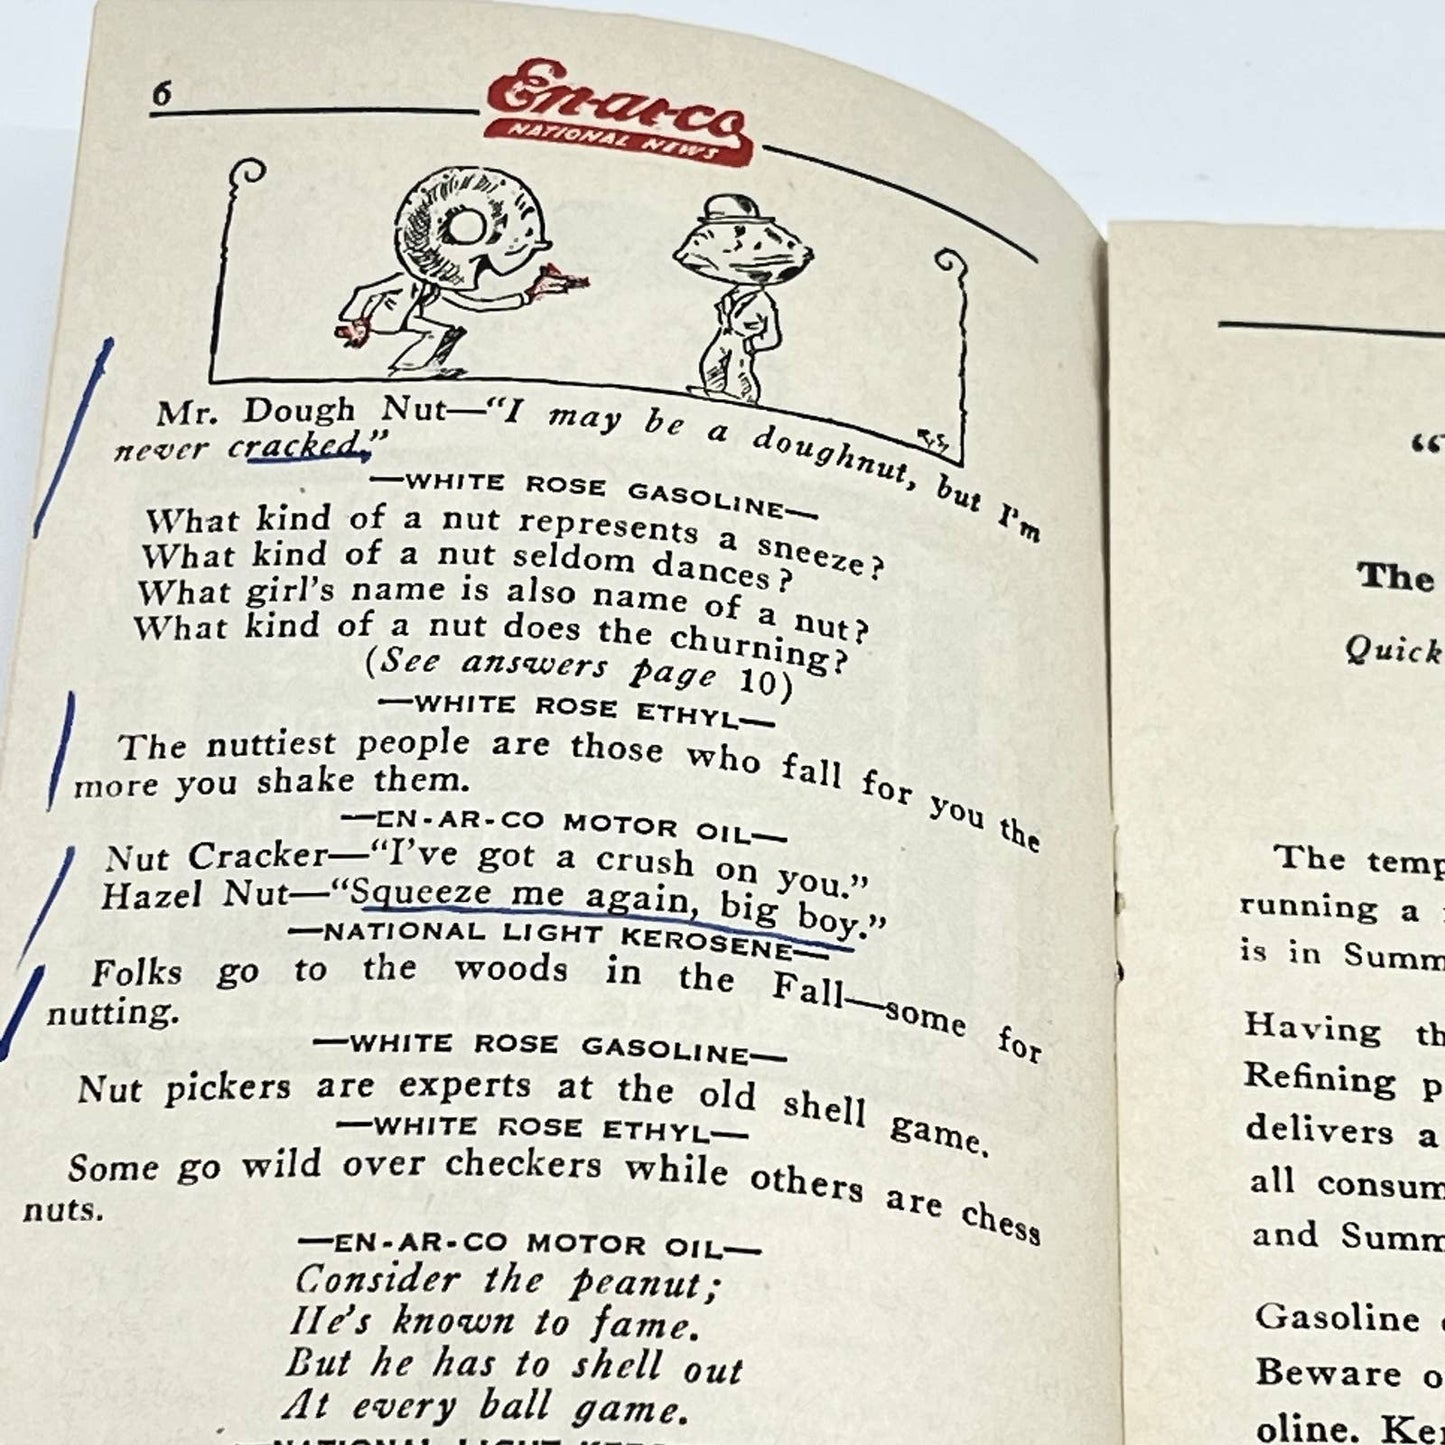 6
En-ar-co
NATIONAL NEWS
Mr. Dough Nut—"I may be a doughnut, but I'm
never cracked."
—WHITE ROSE GASOLINE—
What kind of a nut represents a sneeze?
What kind of a nut seldom dances?
What girl's name is also name of a nut?
What kind of a nut does the churning?
(See answers page 10)
—WHITE ROSE ETHYL—
The nuttiest people are those who fall for you the
more you shake them.
—EN-AR-CO MOTOR OIL—
Nut Cracker—"I've got a crush on you."
Hazel Nut—"Squeeze me again, big boy."
—NATIONAL LIGHT KEROSENE—
Folks go to the woods in the Fall—some for
nutting.
—WHITE ROSE GASOLINE—
Nut pickers are experts at the old shell game.
—WHITE ROSE ETHYL—
Some go wild over checkers while others are chess
nuts.
—EN-AR-CO MOTOR OIL—
Consider the peanut;
He's known to fame.
But he has to shell out
At every ball game.
—NATIONAL LIGHT
"
The
Quick
The temp
running a
is in Summ
Having th
Refining p
delivers a
all consum
and Summ
Gasoline
Beware o
oline. Ker